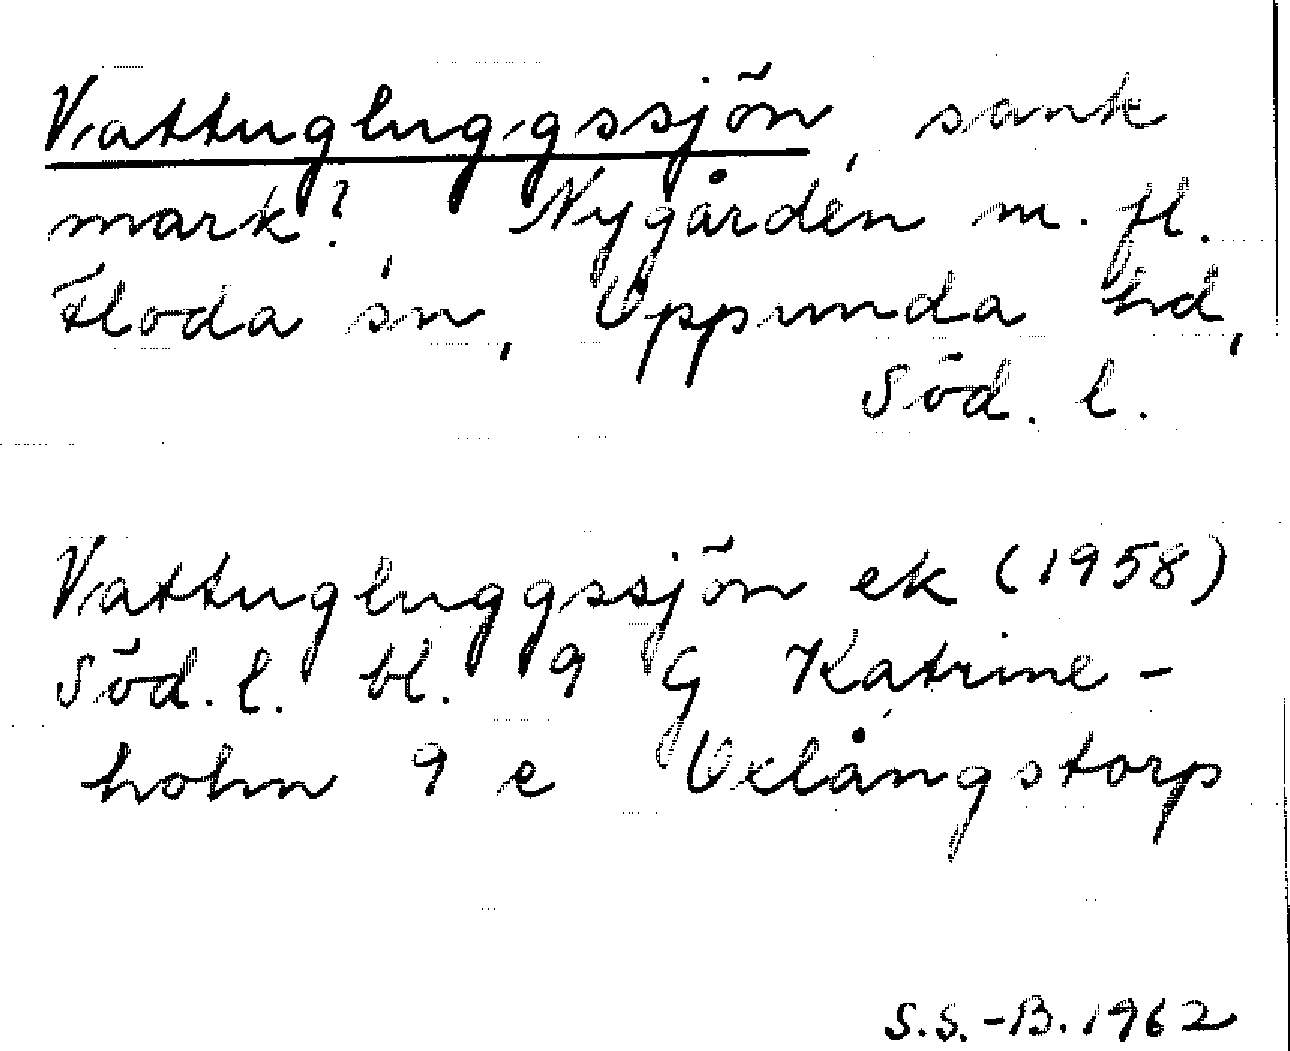 Vattugluggssjön, sank
mark? Nygården m. fl.
Floda sn, Oppunda hd,
Söd. l.
Vattugluggssjön ek (1958)
Söd. l. bl. 9 G Katrine-
holm 9 e Uxlångstorp
S.S.-B. 1962